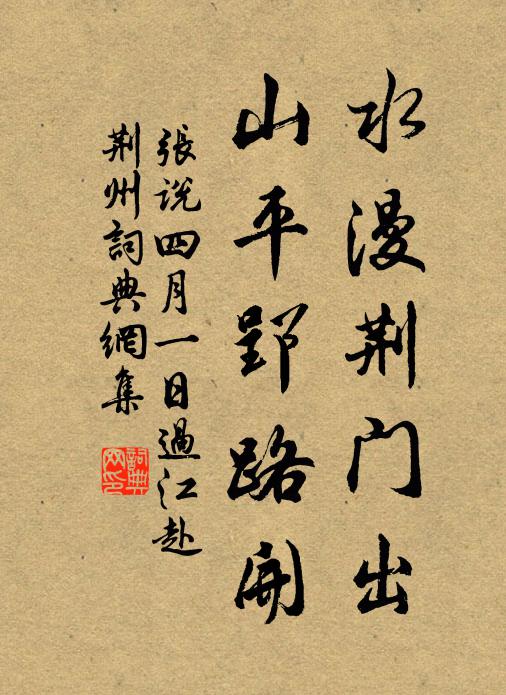 水漫荆门出
山平郢路開
張说四月一日過江赴
荆州詞典網集
詞典
网印